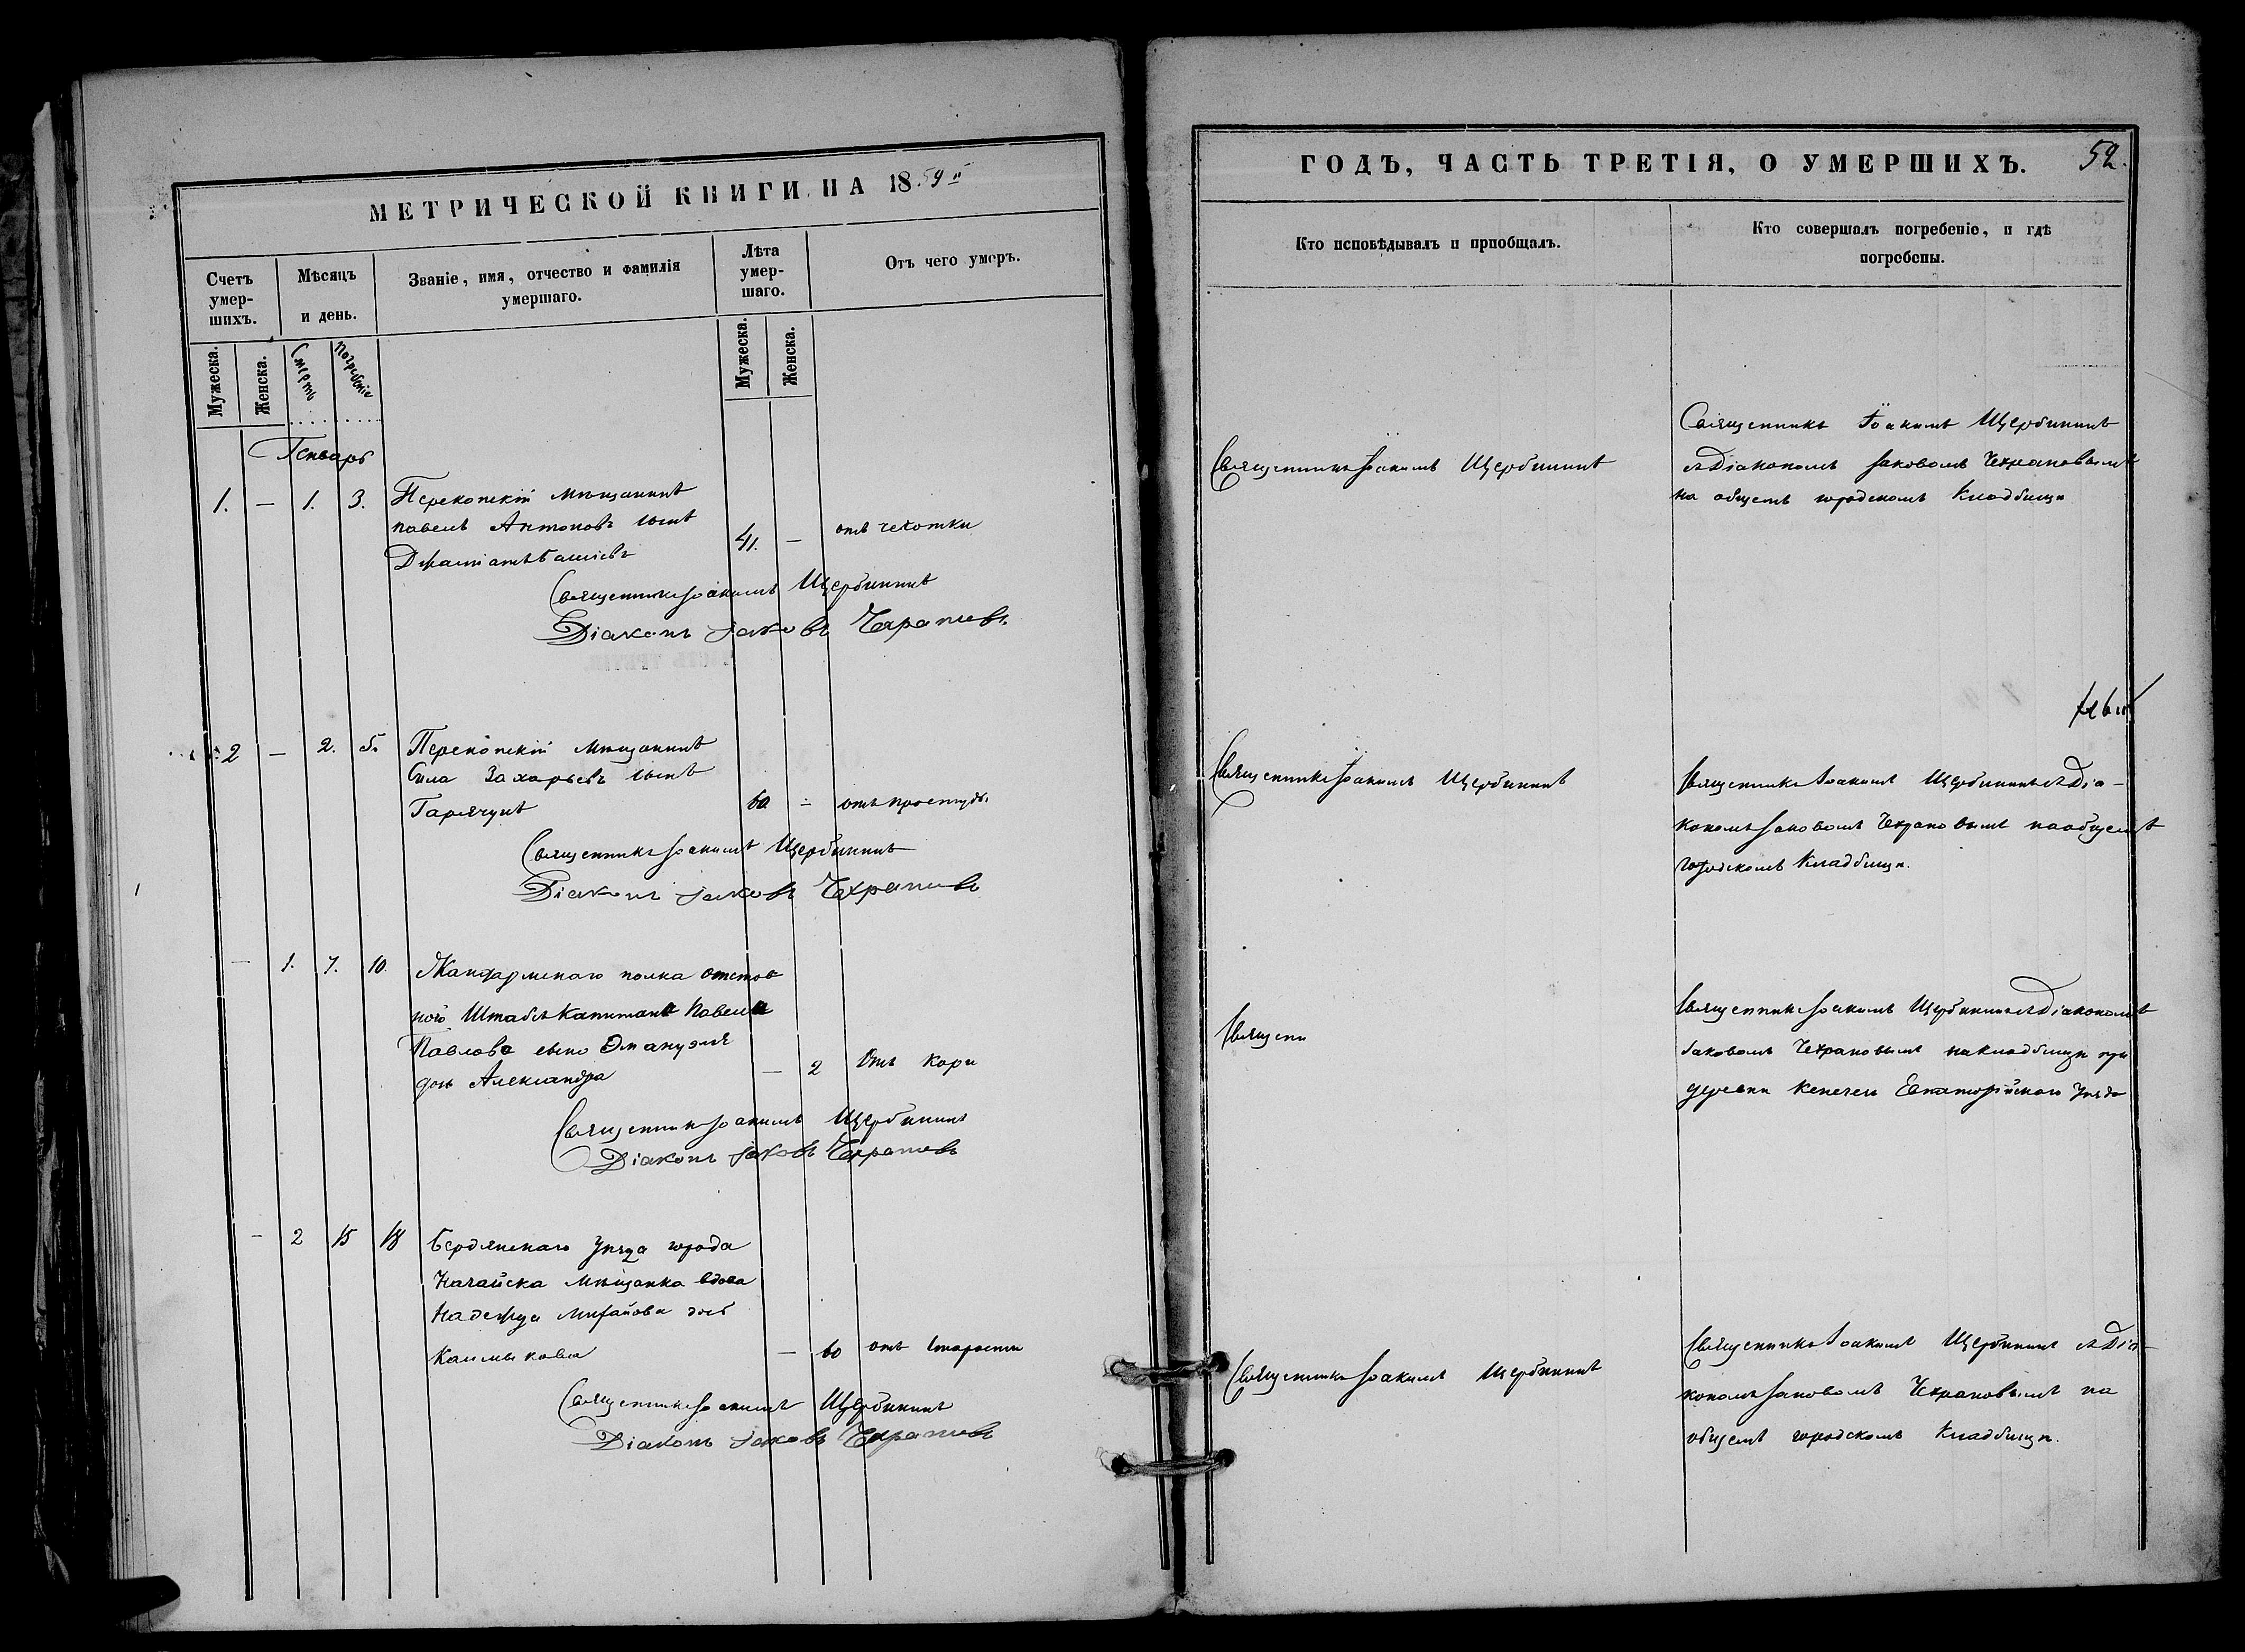 МЕТРИЧЕСКОЙ КНИГИ НА 1859й
Счетъ умершихъ.
Мѣсяцъ и день.
Званіе, имя, отчество и фамилія умершаго.
Лѣта умершаго.
Отъ чего умеръ.
Мужеска.
Женска.
Смерти
Погребенія
Мужеска.
Женска.
Генварь
1. — 1. 3. Перекопскій мѣщанинъ
Павелъ Антоновъ сынъ
41. — отъ чехотки
Священникъ Іоакимъ Щербининъ
Діаконъ Іаковъ Чехрановъ
2 — 2. 5. Перекопскій мѣщанинъ
Сила Захарьевъ сынъ
Гарячунъ 60 — отъ простуды
Священникъ Іоакимъ Щербининъ
Діаконъ Іаковъ Чехрановъ
— 1. 7. 10. Жандармскаго полка отстав
ного Штабсъ Капитана Павела
Павлова сына Эмануэля
дочь Александра — 2 Отъ кори
Священникъ Іоакимъ Щербининъ
Діаконъ Іаковъ Чехрановъ
— 2 15 18 Бердянскаго Уѣзда города
Нагайска мѣщанка вдова
Надежда дочь
Калмыкова — 60 отъ старости
Священникъ Іоакимъ Щербининъ
Діаконъ Іаковъ Чехрановъ
ГОДЪ, ЧАСТЬ ТРЕТІЯ, О УМЕРШИХЪ. 52.
Кто исповѣдывалъ и пріобщалъ.
Кто совершалъ погребеніе, и гдѣ
погребены.
Священникъ Іоакимъ Щербининъ
Священникъ Іоакимъ Щербининъ
съ Діакономъ Іаковомъ Чехрановымъ
на общемъ городскомъ Кладбищѣ
Священникъ Іоакимъ Щербининъ
Священникъ Іоакимъ Щербининъ съ Діа-
кономъ Іаковомъ Чехрановымъ на общемъ
городскомъ Кладбищѣ.
Священ
Священникъ Іоакимъ Щербининъ съ Діакономъ
Іаковомъ Чехрановымъ на кладбищѣ при
деревни Кенегез Евпаторійскаго Уѣзда
Священникъ Іоакимъ Щербининъ
Священникъ Іоакимъ Щербининъ съ Діа-
кономъ Іаковомъ Чехрановымъ на
общемъ городскомъ Кладбищѣ.